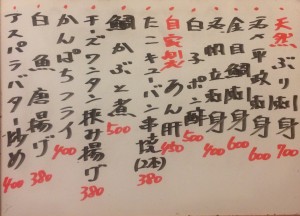 天然ぶり刺身 700
活〆平政刺身 600
金目鯛刺身 600
立刺身 400
白子ポン酢 500
自家製あん肝 450
たこキューバン串焼(2本) 380
鯛かぶと煮 500
チーズワンタン挟み揚げ 380
かんぱちフライ 400
白魚唐揚げ 380
アスパラバター炒め 400